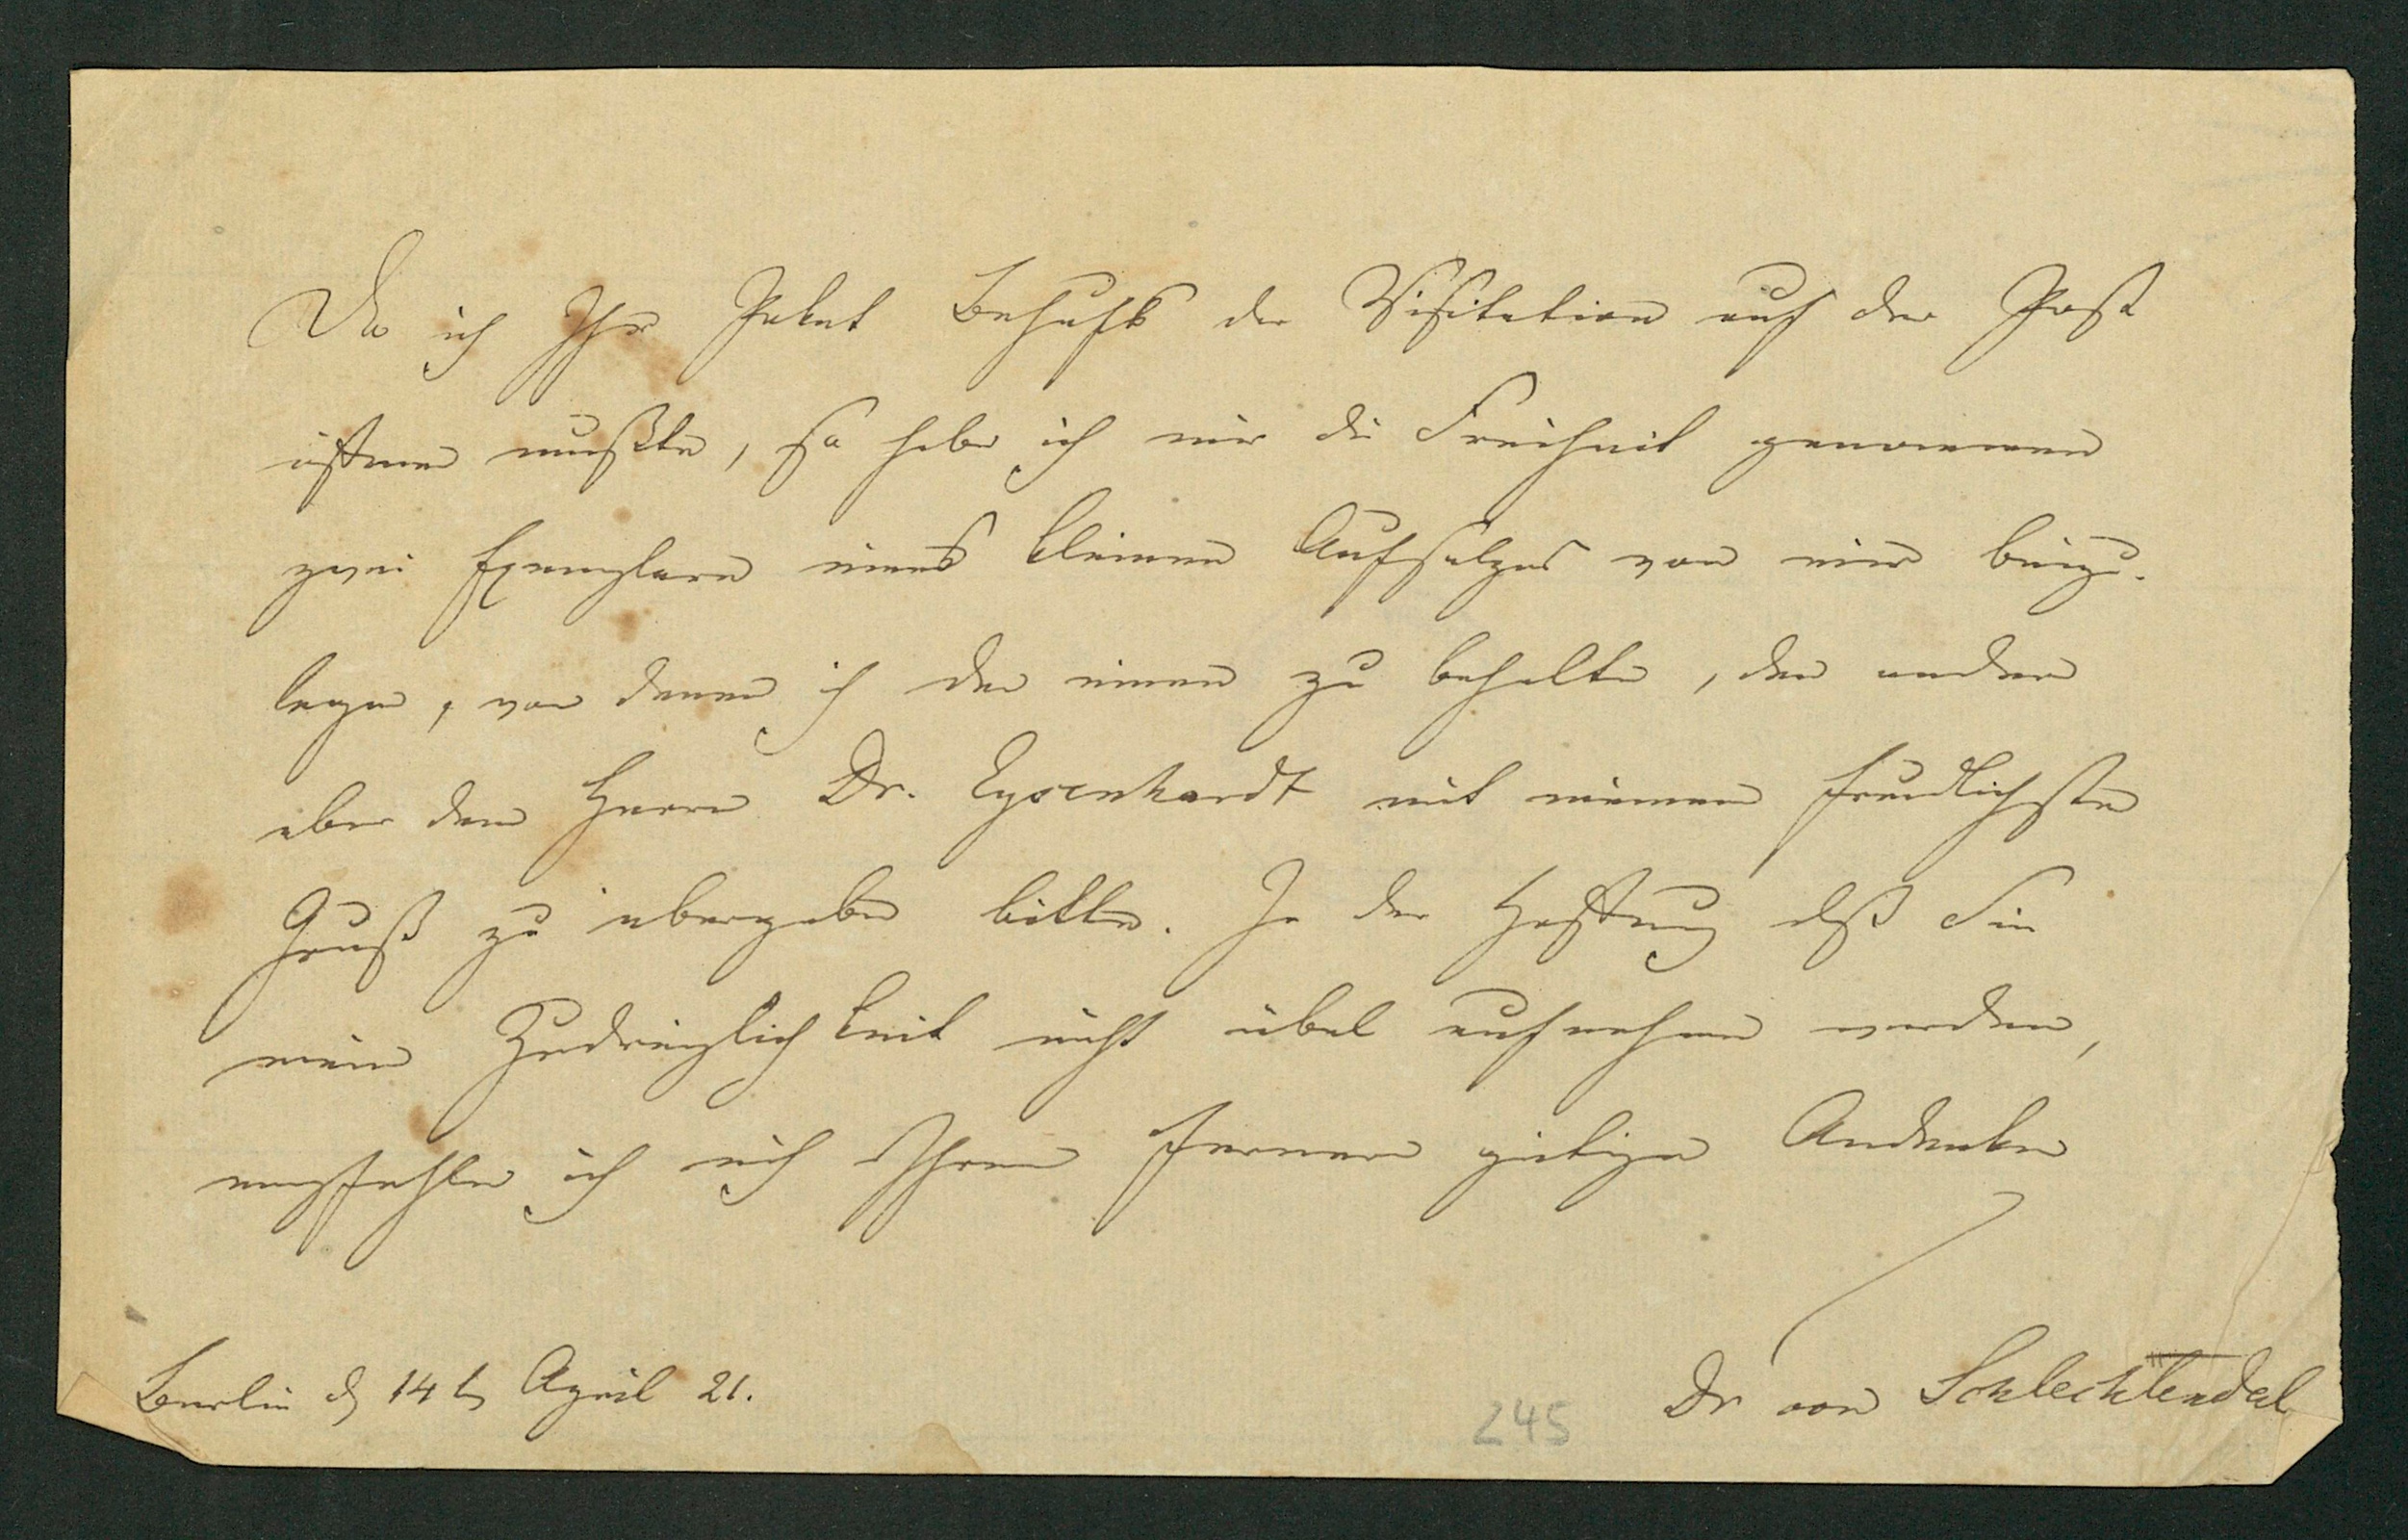 Da ich Ihr Paket Behufs der Visitation auf der Post
öffnen mußte, so habe ich mir die Freiheit genommen
zwei Exemplare eines kleinen Aufsatzes von mir beizu-
legen, von denen ich den einen zu behalten, den andern
aber dem Herrn Dr. Eysenhardt mit meinem freundlichsten
Gruß zu übergeben bitte. In der Hoffnung daß Sie
meine Zudringlichkeit nicht übel aufnehmen werden,
empfehle ich mich Ihrem ferneren gütigen Andenken
Berlin d 14t April 21.
Dr von Schlechtendal
245